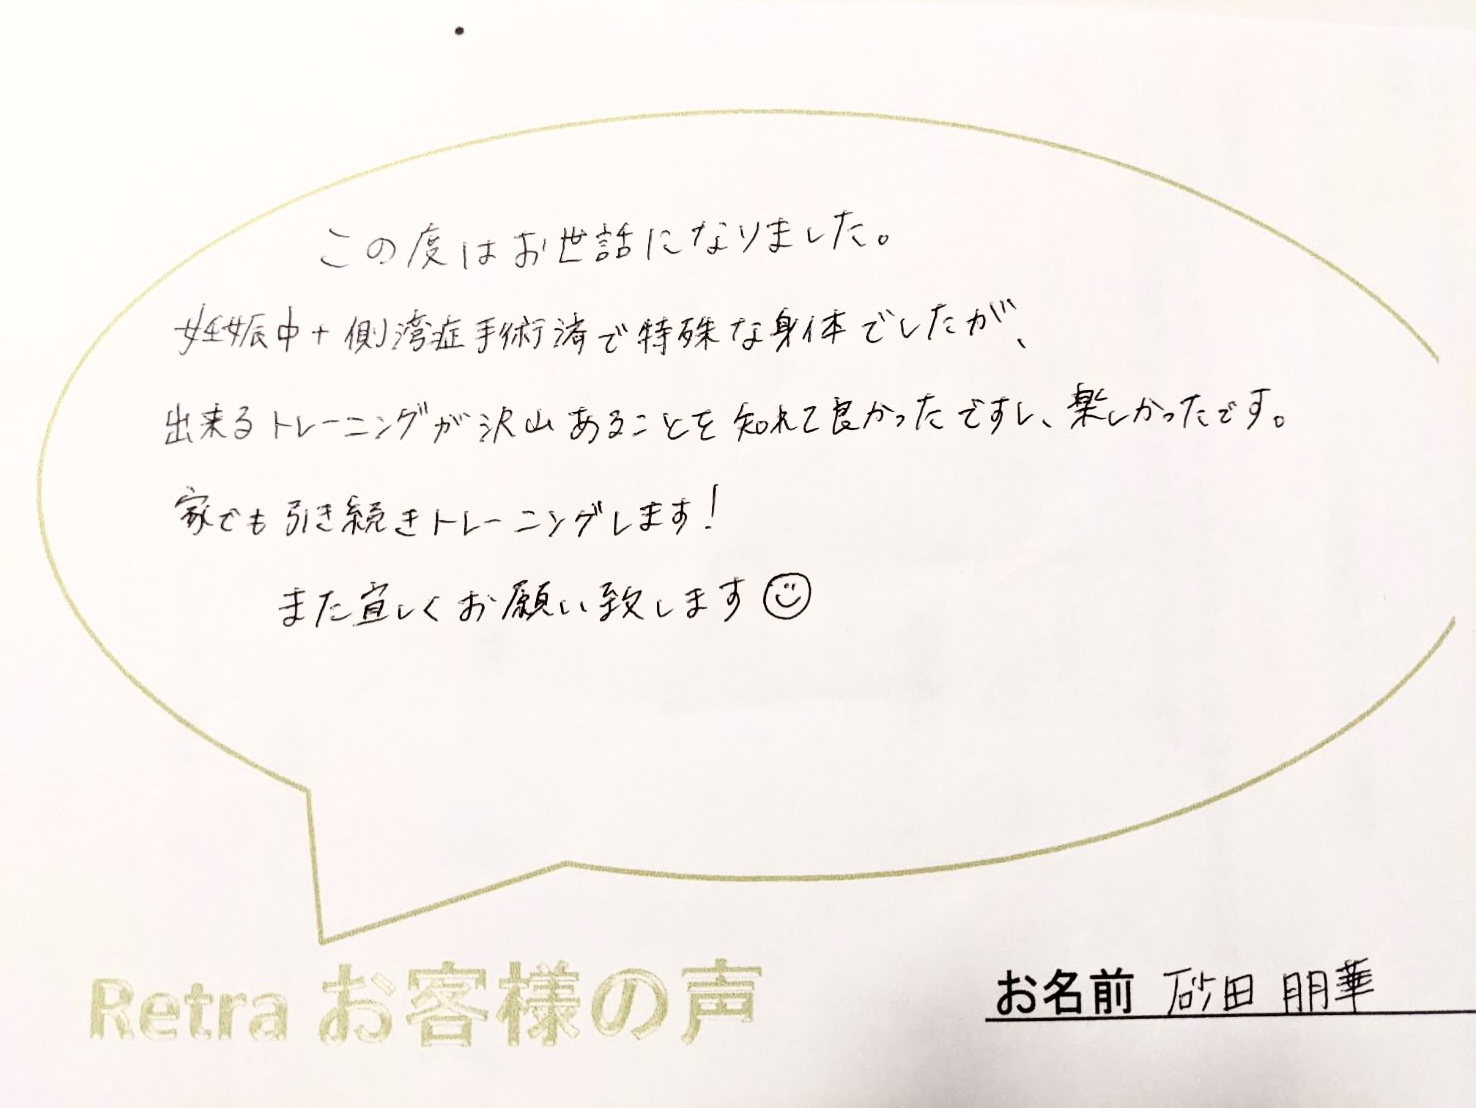 この度はお世話になりました。
妊娠中+側湾症手術済で特殊な身体でしたが、
出来るトレーニングが沢山あることを知れて良かったですし、楽しかったです。
家でも引き続きトレーニングします!
また宜しくお願い致します☺
Retra お客様の声
お名前 砂田 朋華